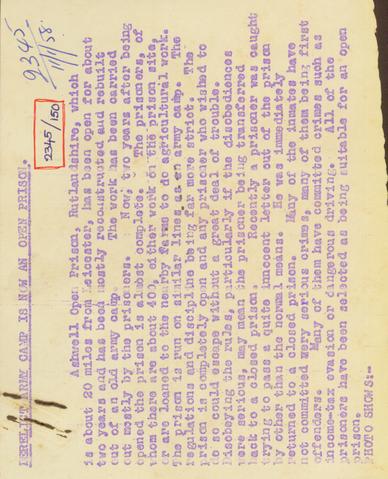 9345
11/1/58.
2345/150
DERELICT ARMY CAMP IS NOW AN OPEN PRISON.
Ashwell Open Prison, Rutlandshire, which
is about 20 miles from Leicester, has been open for about
two years and has been mostly reconstructed and rebuilt
out of an old army camp. The work has been carried
out mostly by the prisoners. Now, two years after being
opened the prison is almost complete. The prisoners, of
whom there are about 400, either work on the prison site,
or are loaned to the nearby farms to do agricultural work.
The prison is run on similar lines as an army camp. The
regulations and discipline being far more strict. The
prison is completely open and any prisoner who wished to
do so could escape without a great deal of trouble.
Disobeying the rules, particularly if the disobediences
were serious, may mean the prisoner being transferred
back to a closed prison. Recently a prisoner was caught
trying to pass a quite innocent letter out of the prison
by other than the normal means. He was immediately
returned to a closed prison. Many of the inmates have
not committed very serious crimes, many of them being first
offenders. Many of them have committed crimes such as
income-tax evasion or dangerous driving. All of the
prisoners have been selected as being suitable for an open
prison.
PHOTO SHOWS:-